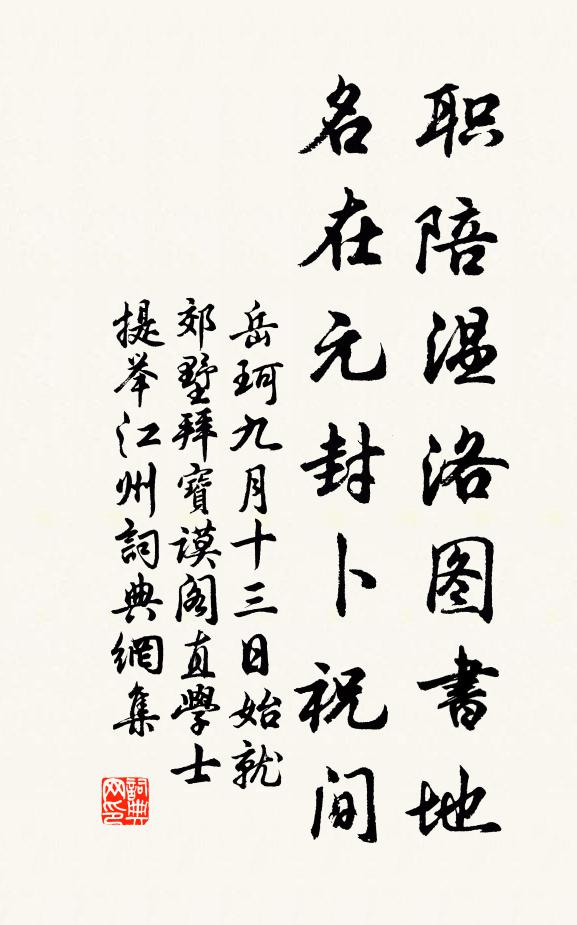 职陪温洛图書地
名在元封卜祝间
岳珂九月十三日始就
郊墅拜寶谟阁直學士
提举江州詞典網集
詞典网印